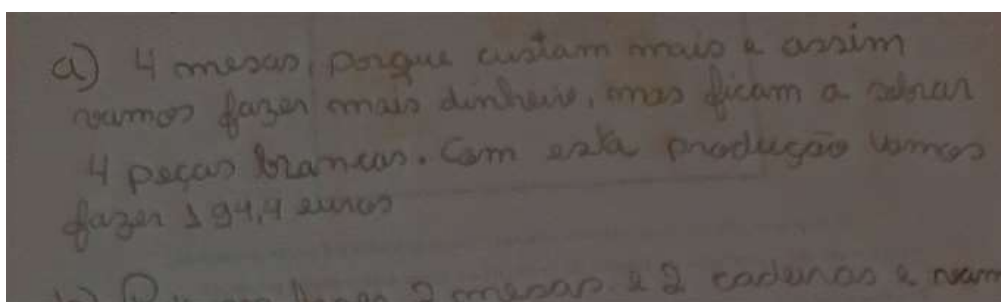 a) 4 mesas, porque custam mais e assim
vamos fazer mais dinheiro, mas ficam a sobrar
4 peças brancas. Com esta produção vamos
fazer 194,4 euros
2 mesas e 2 cadeiras e vam